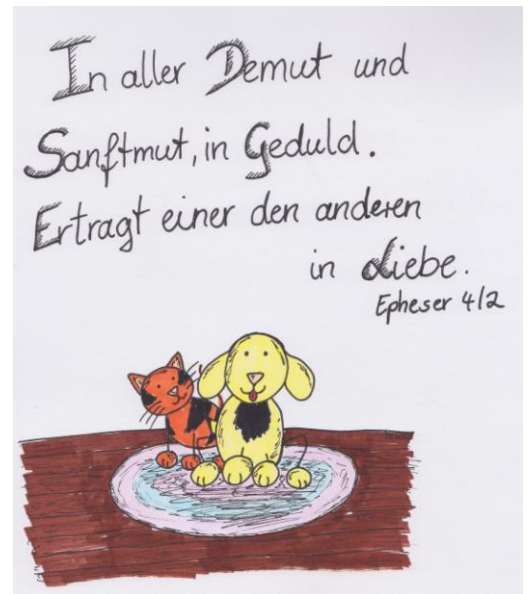 In aller Demut und
Sanftmut, in Geduld.
Ertragt einer den anderen
in Liebe.
Epheser 4/2